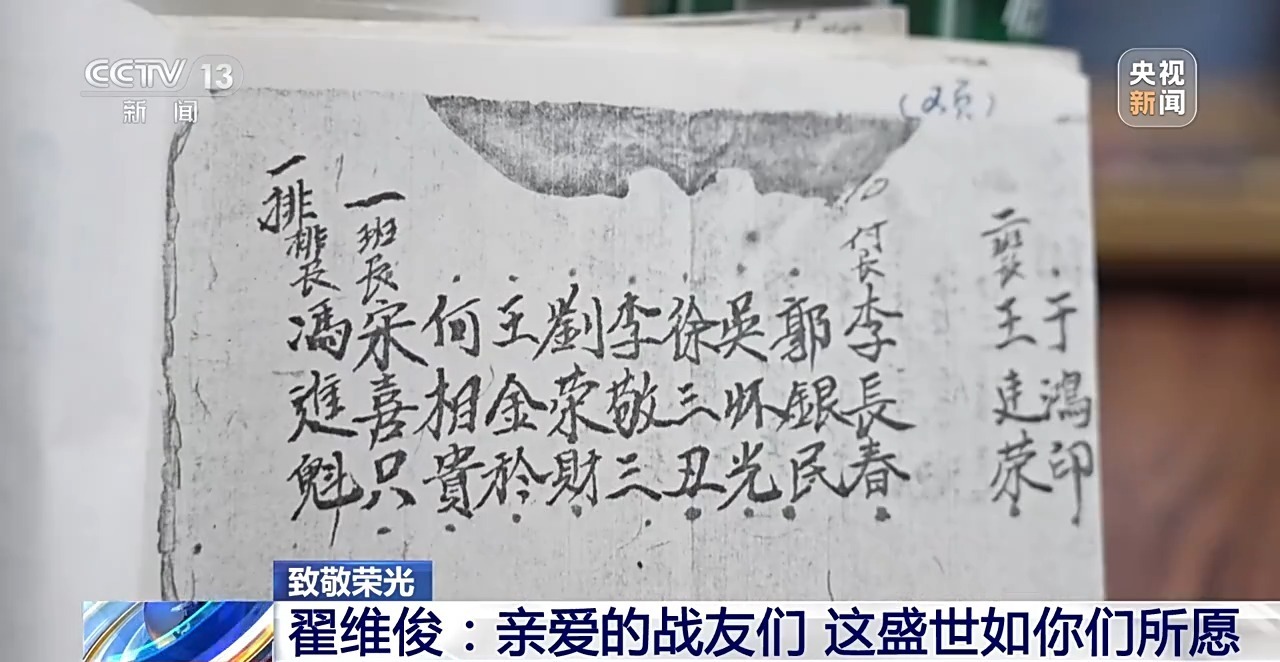 CCTV 13
新闻
央视
新闻
(又页)
一排
排长
馮進魁
一班长
宋喜只
何相貴
王金矜
劉荣財
李敬三
徐三丑
吳怀光
郭銀民
付长
李長春
二班长
王建荣
于鴻印
致敬荣光
翟维俊：亲爱的战友们 这盛世如你们所愿